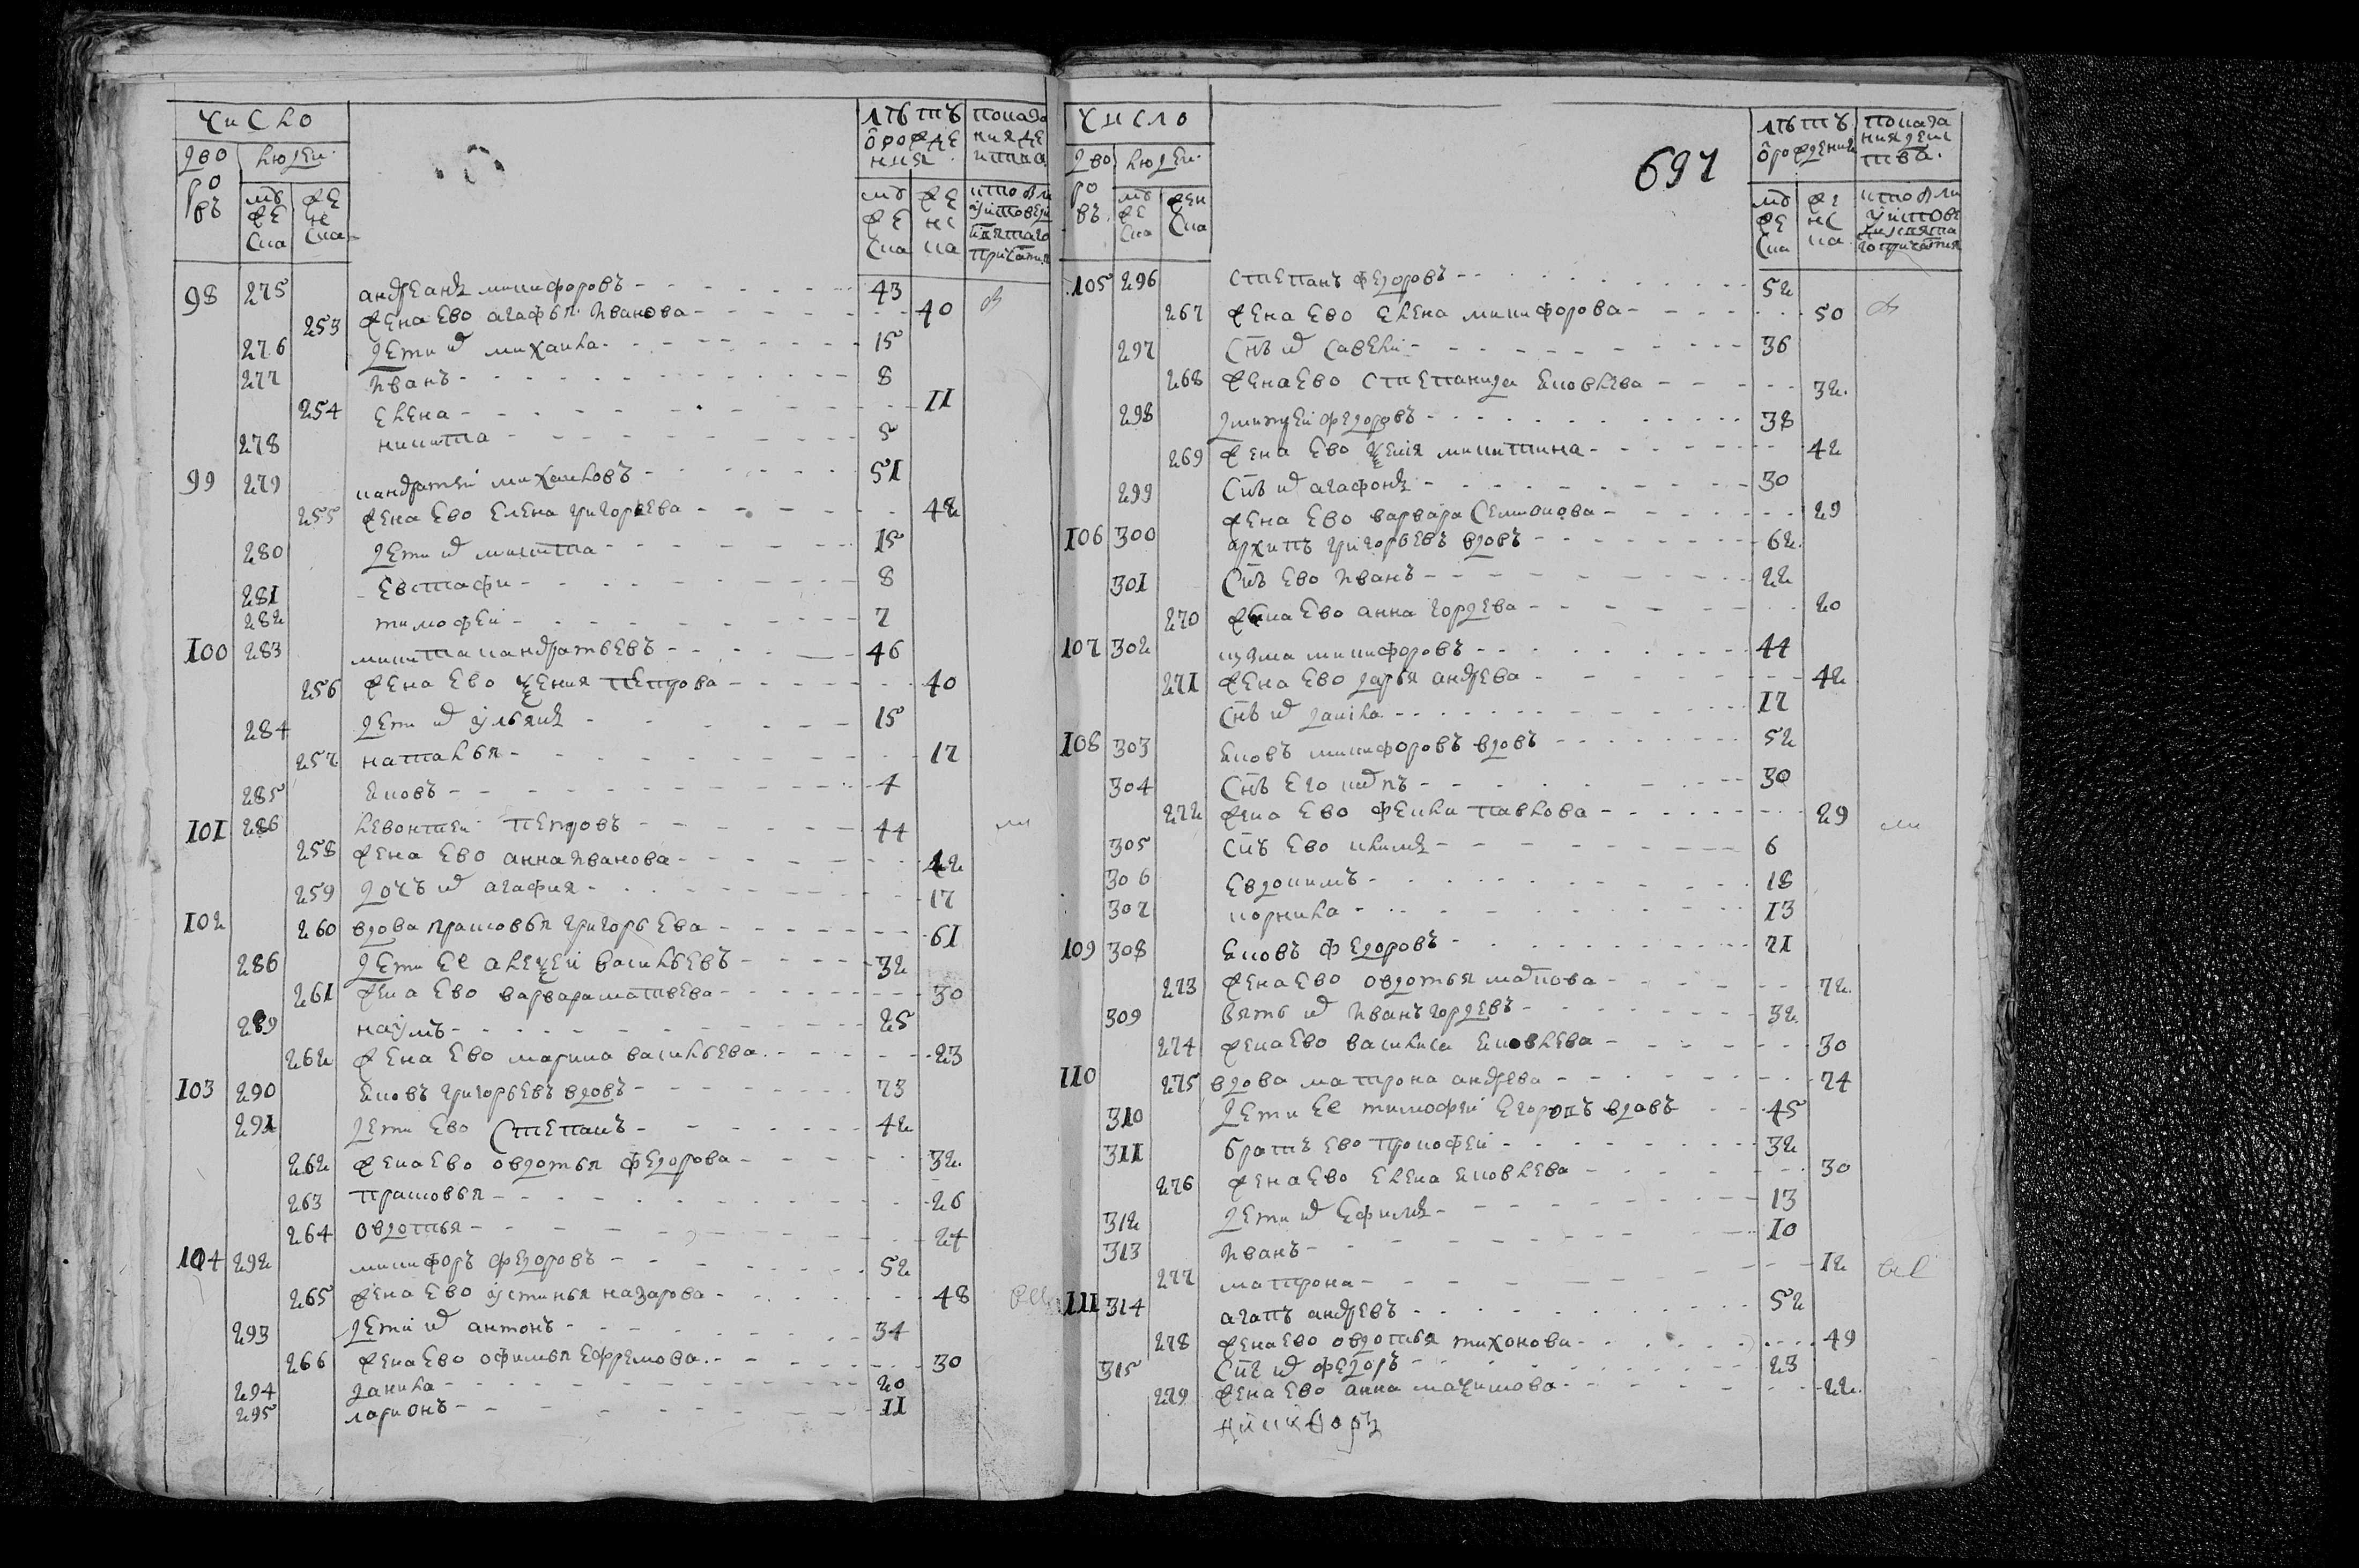 число
дво
ро
въ
людеи
мꙋ
же
ска
же
нс
ска
лѣтъ
ѿ рожде
ния
мꙋ
же
ска
же
нс
ка
98 275 андреанъ никифоровъ 43
253 жена ево агафья иванова 40
276 дети их михаила 15
277 иванъ 8
254 елена 11
278 никита 5
99 279 кандратеи михаиловъ 51
255 жена ево елена григорьева 42
280 дети их никита 15
281 евстафи 8
282 тимофеи 7
100 283 никита кандратьевъ 46
256 жена ево ѯения петрова 40
284 дети их ульянъ 15
257 наталья 17
285 яковъ 4
101 286 левонтеи петровъ 44
258 жена ево анна иванова 42
259 дочъ их агафия 17
102 260 вдова прасковья григорьева 61
286 дети ее алеѯеи васильевъ 32
261 жена ево варвара матвева 30
289 наумъ 25
262 жена ево марина васильева 23
103 290 яковъ григорьевъ вдовъ 73
291 дети ево степанъ 42
262 жена ево овдотья федорова 32
263 прасковья 26
264 овдотья 24
104 292 никифоръ федоровъ 52
265 жена ево устинья назарова 48
293 дети их антонъ 34
266 жена ево офимья ефремова 30
294 данила 20
295 ларионъ 11
697
число
дво
ро
въ
людеи
мꙋ
же
ска
жен
ска
лѣтъ
ѿ рождения
мꙋ
же
ска
же
нс
ка
105 296 степанъ федоровъ 52
267 жена ево елена никифорова 50
297 снъ их савели 36
268 жена ево степанида яковлева 32
298 дмитреи федоровъ 38
269 жена ево ѯения никитина 42
299 снъ их агафонъ 30
жена ево варвара 29
106 300 архипъ григорьевъ вдовъ 62
301 снъ ево иванъ 22
270 жена ево анна гордева 20
107 302 кузма никифоровъ 44
271 жена ево дарья андрева 42
снъ их данила 17
108 303 яковъ никифоровъ вдовъ 52
304 снъ его 30
272 жена ево павлова 29
305 снъ ево климъ 6
306 евдокимъ 18
307 корнила 13
109 308 яковъ федоровъ 71
273 жена ево овдотья 72
309 зять их иванъ гордевъ 32
274 жена ево василиса яковлева 30
110 275 вдова матрона андрева 74
310 дети ее тимофеи вдовъ 45
311 братъ ево прокофеи 32
276 жена ево елена яковлева 30
312 дети их ефимъ 13
313 иванъ 10
277 матрона 12
111 314 агапъ андревъ 52
278 жена ево овдотья тихонова 49
315 снъ их федоръ 23
279 жена ево анна маѯимова 22
никифоръ